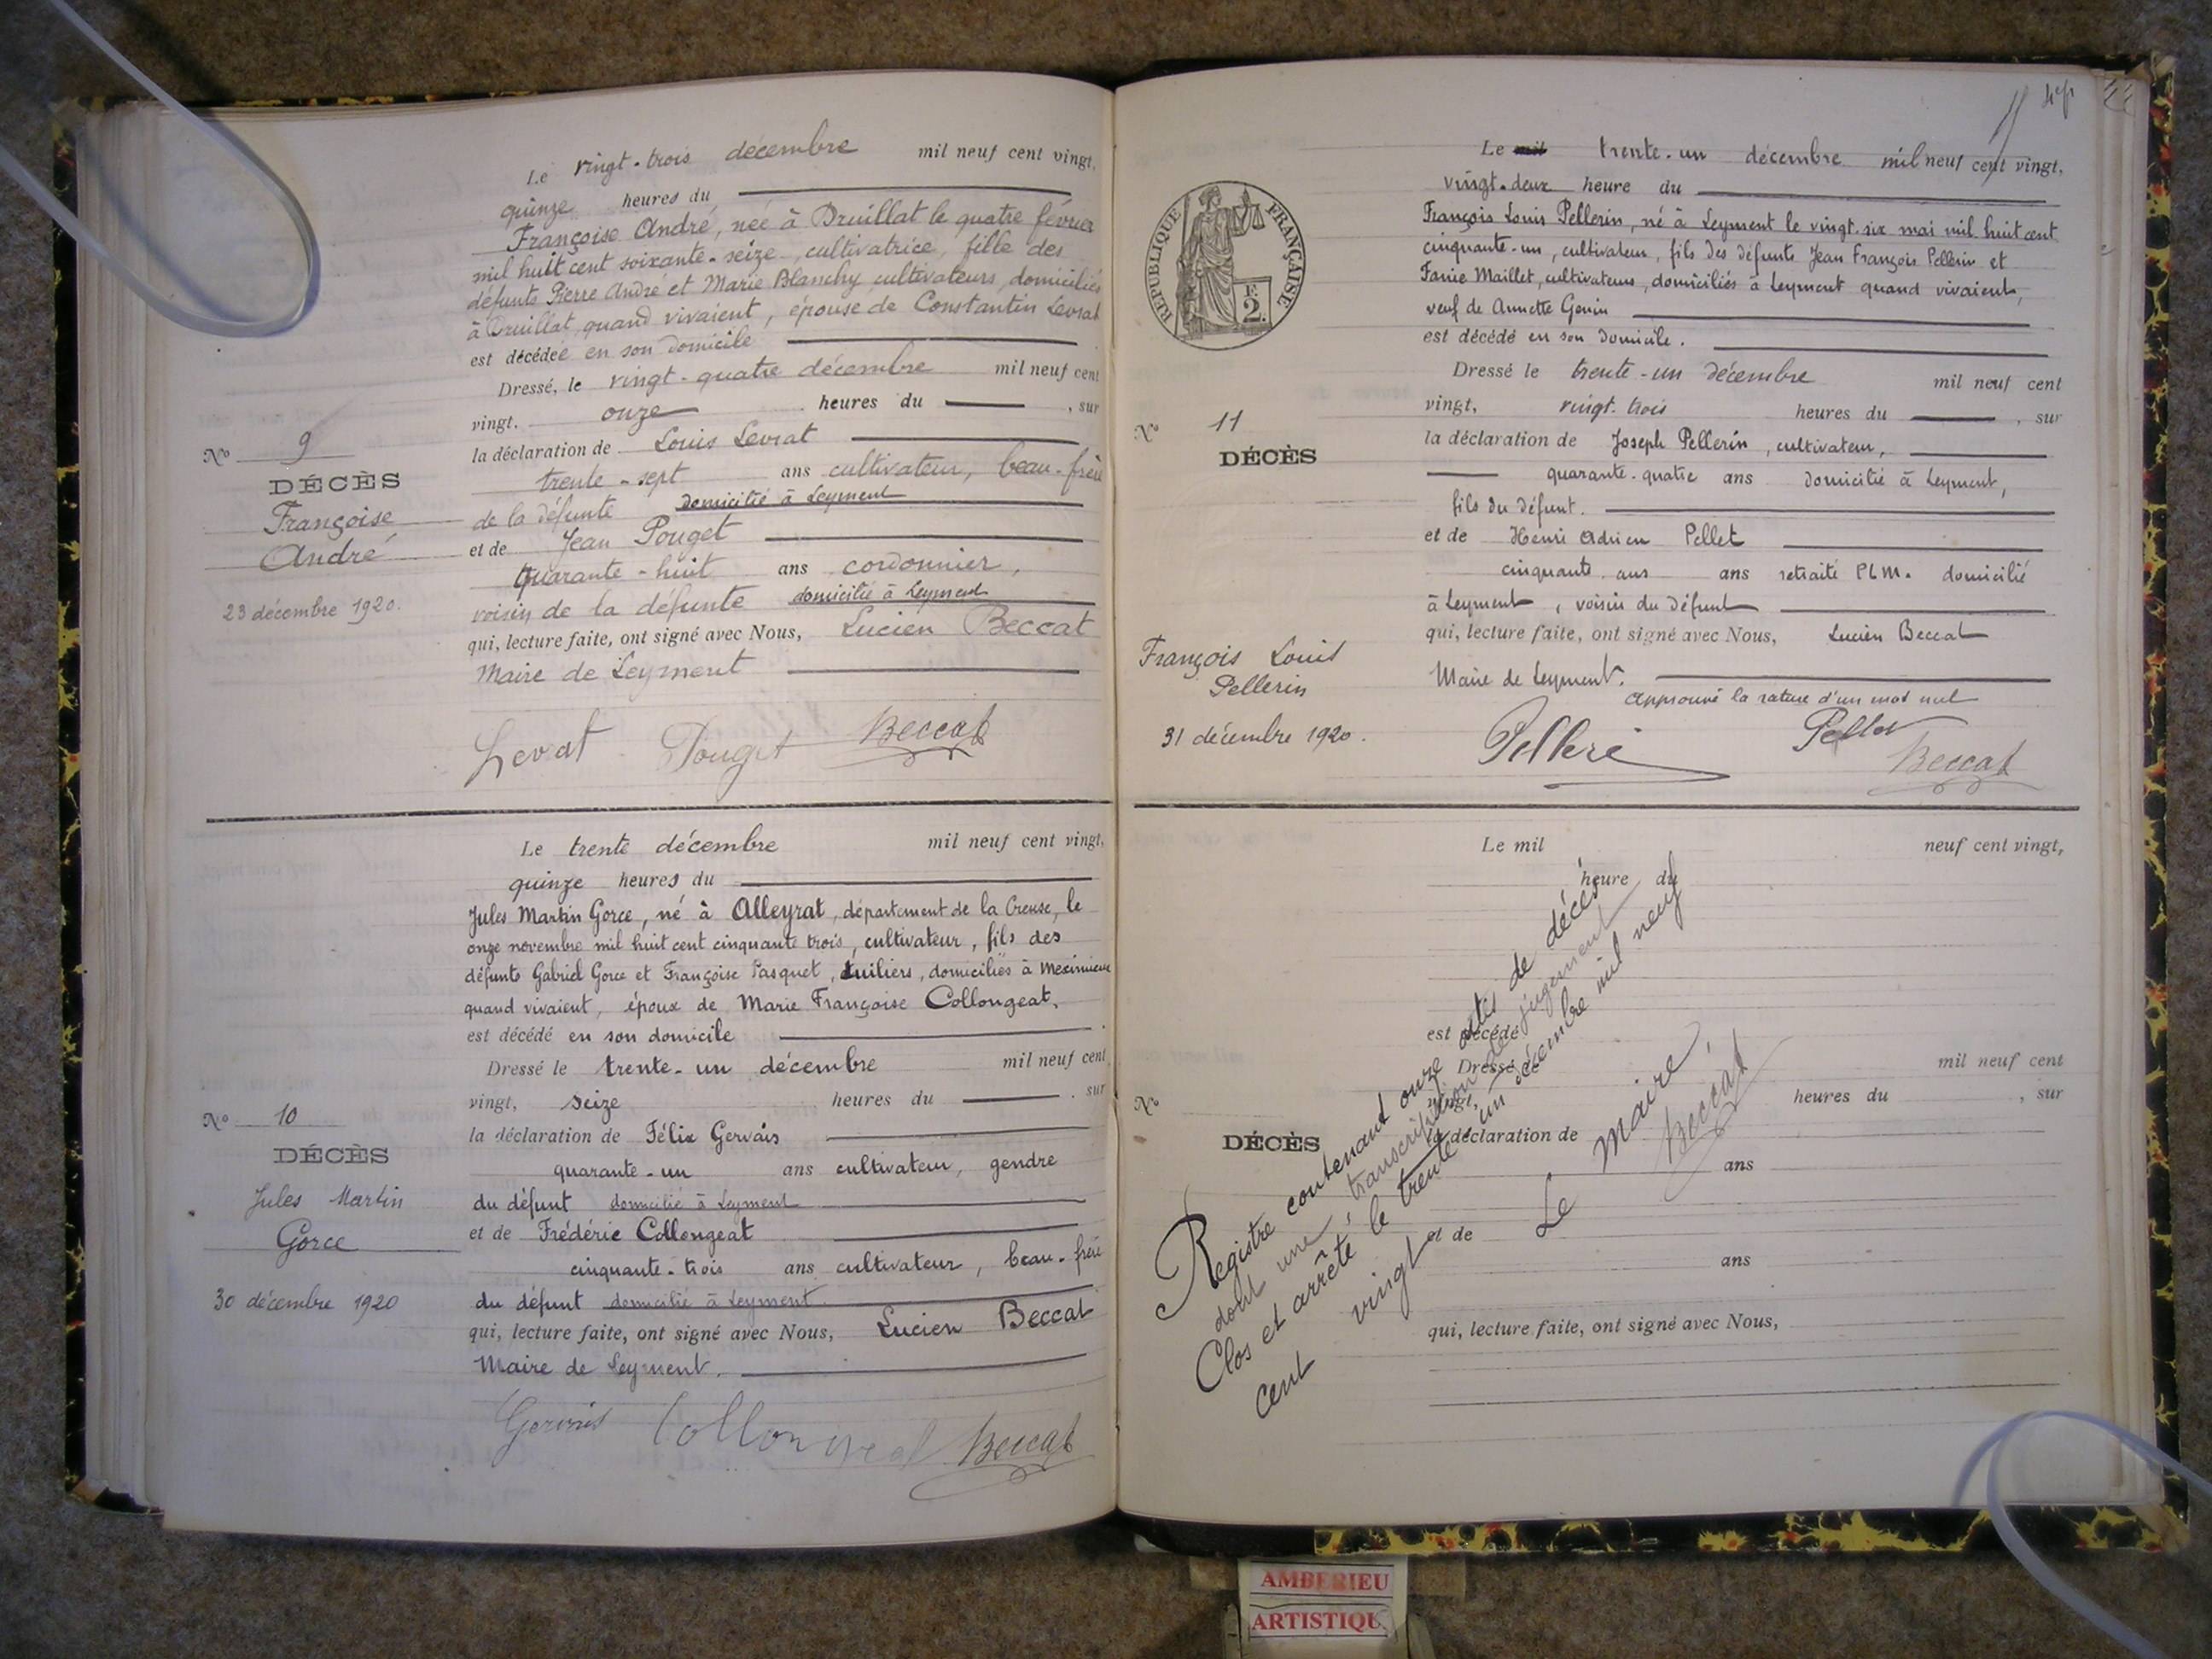 Le vingt-trois décembre mil neuf cent vingt,
quinze heures du
Françoise André, née à Druillat le quatre février
mil huit cent soixante-seize, cultivatrice, fille des
défunts Pierre André et Marie Blanchy cultivateurs, domiciliés
à Druillat, quand vivaient, épouse de Constantin Levrat
est décédée en son domicile
Dressé, le vingt-quatre décembre mil neuf cent
vingt. onze heures du , sur
la déclaration de Louis Levrat
trente-sept ans cultivateur, beau-frère
de la défunte domicilié à Leyment
et de Jean Pouget
quarante-huit ans cordonnier,
voisin de la défunte domicilié à Leyment
qui, lecture faite, ont signé avec Nous, Lucien Beccat
Maire de Leyment
Levrat Pouget Beccat
No 9
DÉCÈS
Françoise
André
23 décembre 1920.
Le trente décembre mil neuf cent vingt,
quinze heures du
Jules Martin Gorce, né à Alleyrat, département de la Creuse, le
onze novembre mil huit cent cinquante trois, cultivateur, fils des
défunts Gabriel Gorce et Françoise Pasquet, tuiliers, domiciliés à Meximieux
quand vivaient, époux de Marie Françoise Collongeat,
est décédé en son domicile .
Dressé le trente-un décembre mil neuf cent
vingt, seize heures du . sur
la déclaration de Félix Gervais
quarante-un ans cultivateur, gendre
du défunt domicilié à Leyment
et de Frédéric Collongeat
cinquante-trois ans cultivateur, beau-frère
du défunt domicilié à Leyment
qui, lecture faite, ont signé avec Nous, Lucien Beccat
Maire de Leyment.
Gervais Collongeat Beccat
No 10
DÉCÈS
Jules Martin
Gorce
30 décembre 1920
Le mil trente-un décembre mil neuf cent vingt,
vingt-deux heure du
François Louis Pellerin, né à Leyment le vingt-six mai mil huit cent
cinquante-un, cultivateur, fils des défunts Jean François Pellerin et
Fanie Maillet, cultivateurs, domiciliés à Leyment quand vivaient,
veuf de Annette Genin
est décédé en son domicile.
Dressé le trente-un décembre mil neuf cent
vingt, vingt-trois heures du , sur
la déclaration de Joseph Pellerin, cultivateur,
quarante-quatre ans domicilié à Leyment,
fils du défunt.
et de Henri Adrien Pellet
cinquante ans ans retraité PLM. domicilié
à Leyment, voisin du défunt
qui, lecture faite, ont signé avec Nous, Lucien Beccat
Maire de Leyment.
Approuvé la rature d'un mot nul
Pelleri Pellet
Beccat
RÉPUBLIQUE FRANÇAISE
F.
2.
No 11
DÉCÈS
François Louis
Pellerin
31 décembre 1920.
Le mil neuf cent vingt,
heure du
est décédé
Dressé le mil neuf cent
vingt, heures du , sur
la déclaration de
ans
et de
ans
qui, lecture faite, ont signé avec Nous,
No
DÉCÈS
Registre contenant onze actes de décès
dont une transcription de jugement
Clos et arrêté le trente-un décembre mil neuf
cent vingt
Le Maire,
Beccat
AMBERIEU
ARTISTIQUE